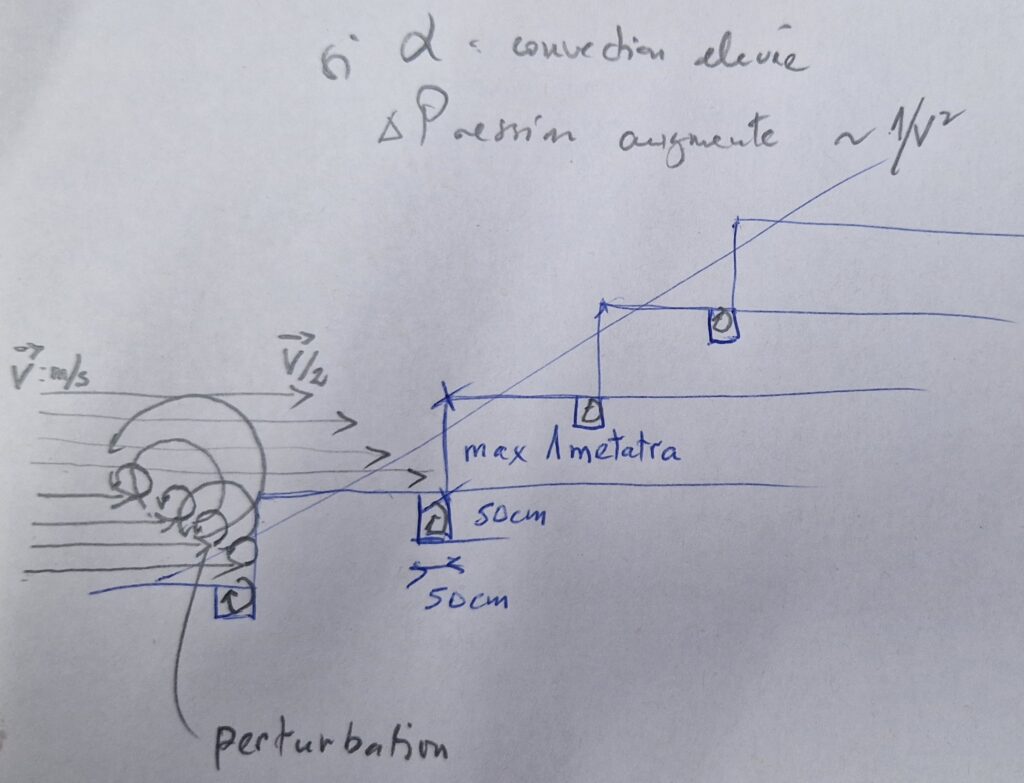 si α = convection elevée
Δ Pression augmente ~ 1/V²
V : m/s
V/2
max 1 metatra
50cm
50cm
perturbation